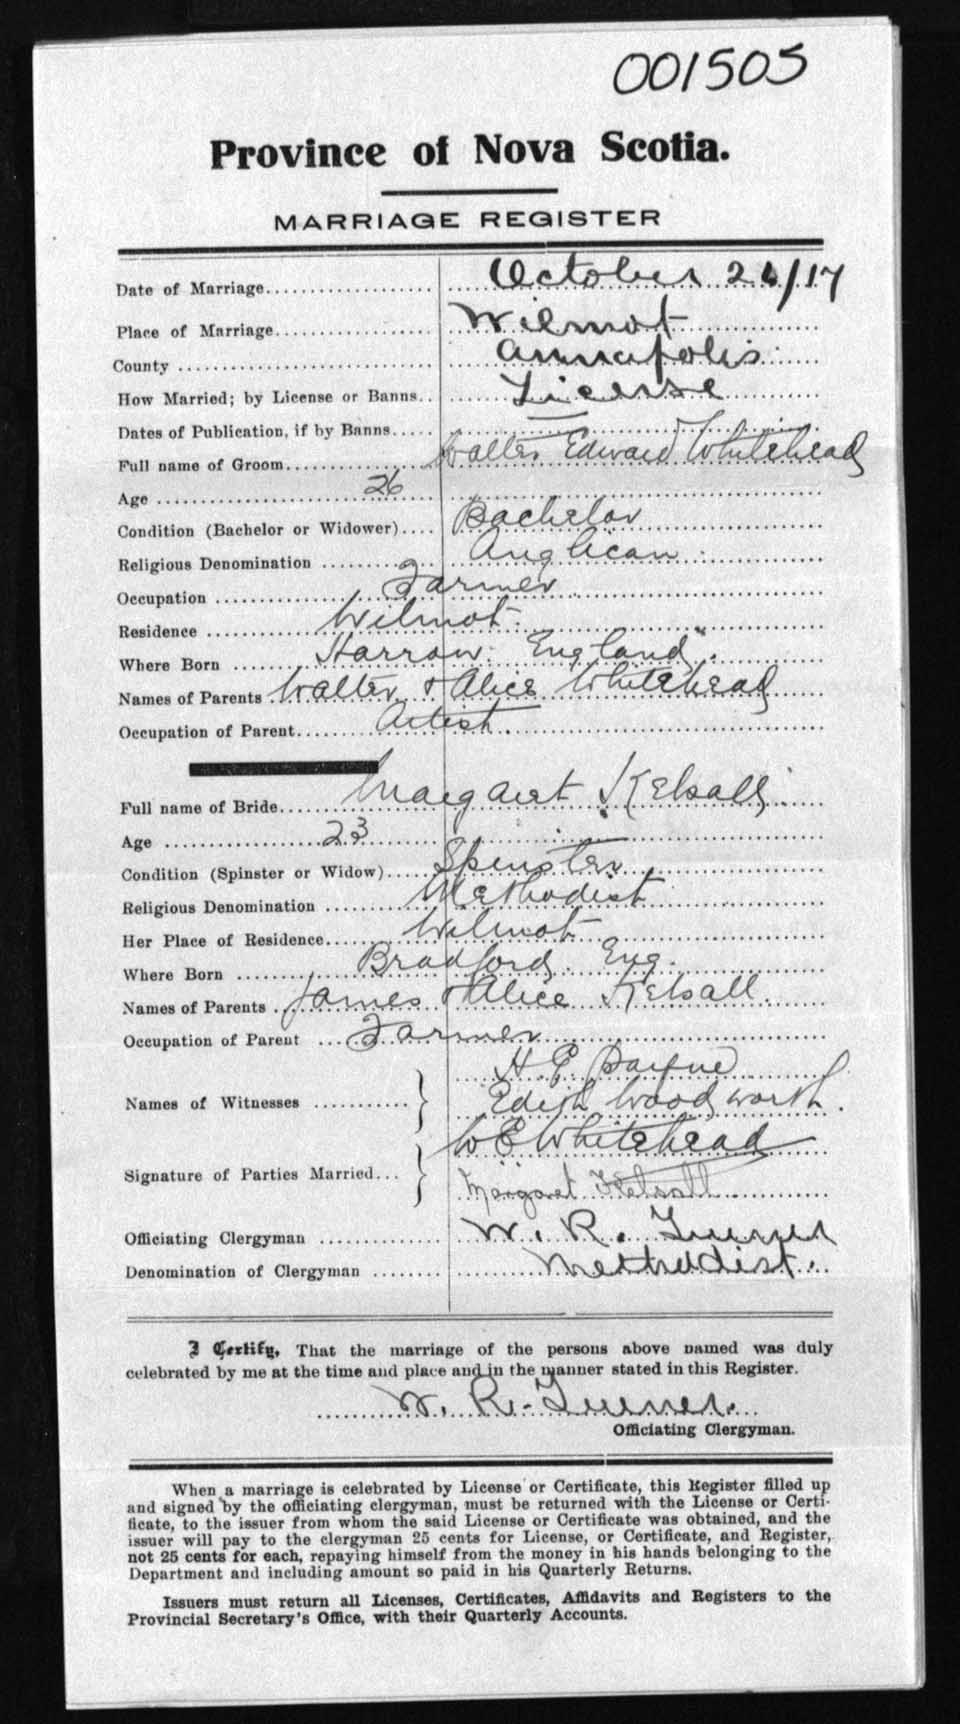 001505
Province of Nova Scotia.
MARRIAGE REGISTER
Date of Marriage October 26/17
Place of Marriage Wilmot
County Annapolis
How Married; by License or Banns License
Dates of Publication, if by Banns —
Full name of Groom Walter Edward Whitehead
Age 26
Condition (Bachelor or Widower) Bachelor
Religious Denomination Anglican
Occupation Farmer
Residence Wilmot
Where Born Harrow England
Names of Parents Walter & Alice Whitehead
Occupation of Parent Artist
Full name of Bride Margaret Kelsall
Age 23
Condition (Spinster or Widow) Spinster
Religious Denomination Methodist
Her Place of Residence Wilmot
Where Born Bradford. Eng.
Names of Parents James & Alice Kelsall
Occupation of Parent Farmer
H. E. Payne
Names of Witnesses Edith Woodworth.
W E Whitehead
Signature of Parties Married
Margaret Kelsall
Officiating Clergyman W. R. Turner
Denomination of Clergyman Methodist.
I Certify, That the marriage of the persons above named was duly
celebrated by me at the time and place and in the manner stated in this Register.
W. R. Turner.
Officiating Clergyman.
When a marriage is celebrated by License or Certificate, this Register filled up
and signed by the officiating clergyman, must be returned with the License or Certi-
ficate, to the issuer from whom the said License or Certificate was obtained, and the
issuer will pay to the clergyman 25 cents for License, or Certificate, and Register,
not 25 cents for each, repaying himself from the money in his hands belonging to the
Department and including amount so paid in his Quarterly Returns.
Issuers must return all Licenses, Certificates, Affidavits and Registers to the
Provincial Secretary's Office, with their Quarterly Accounts.